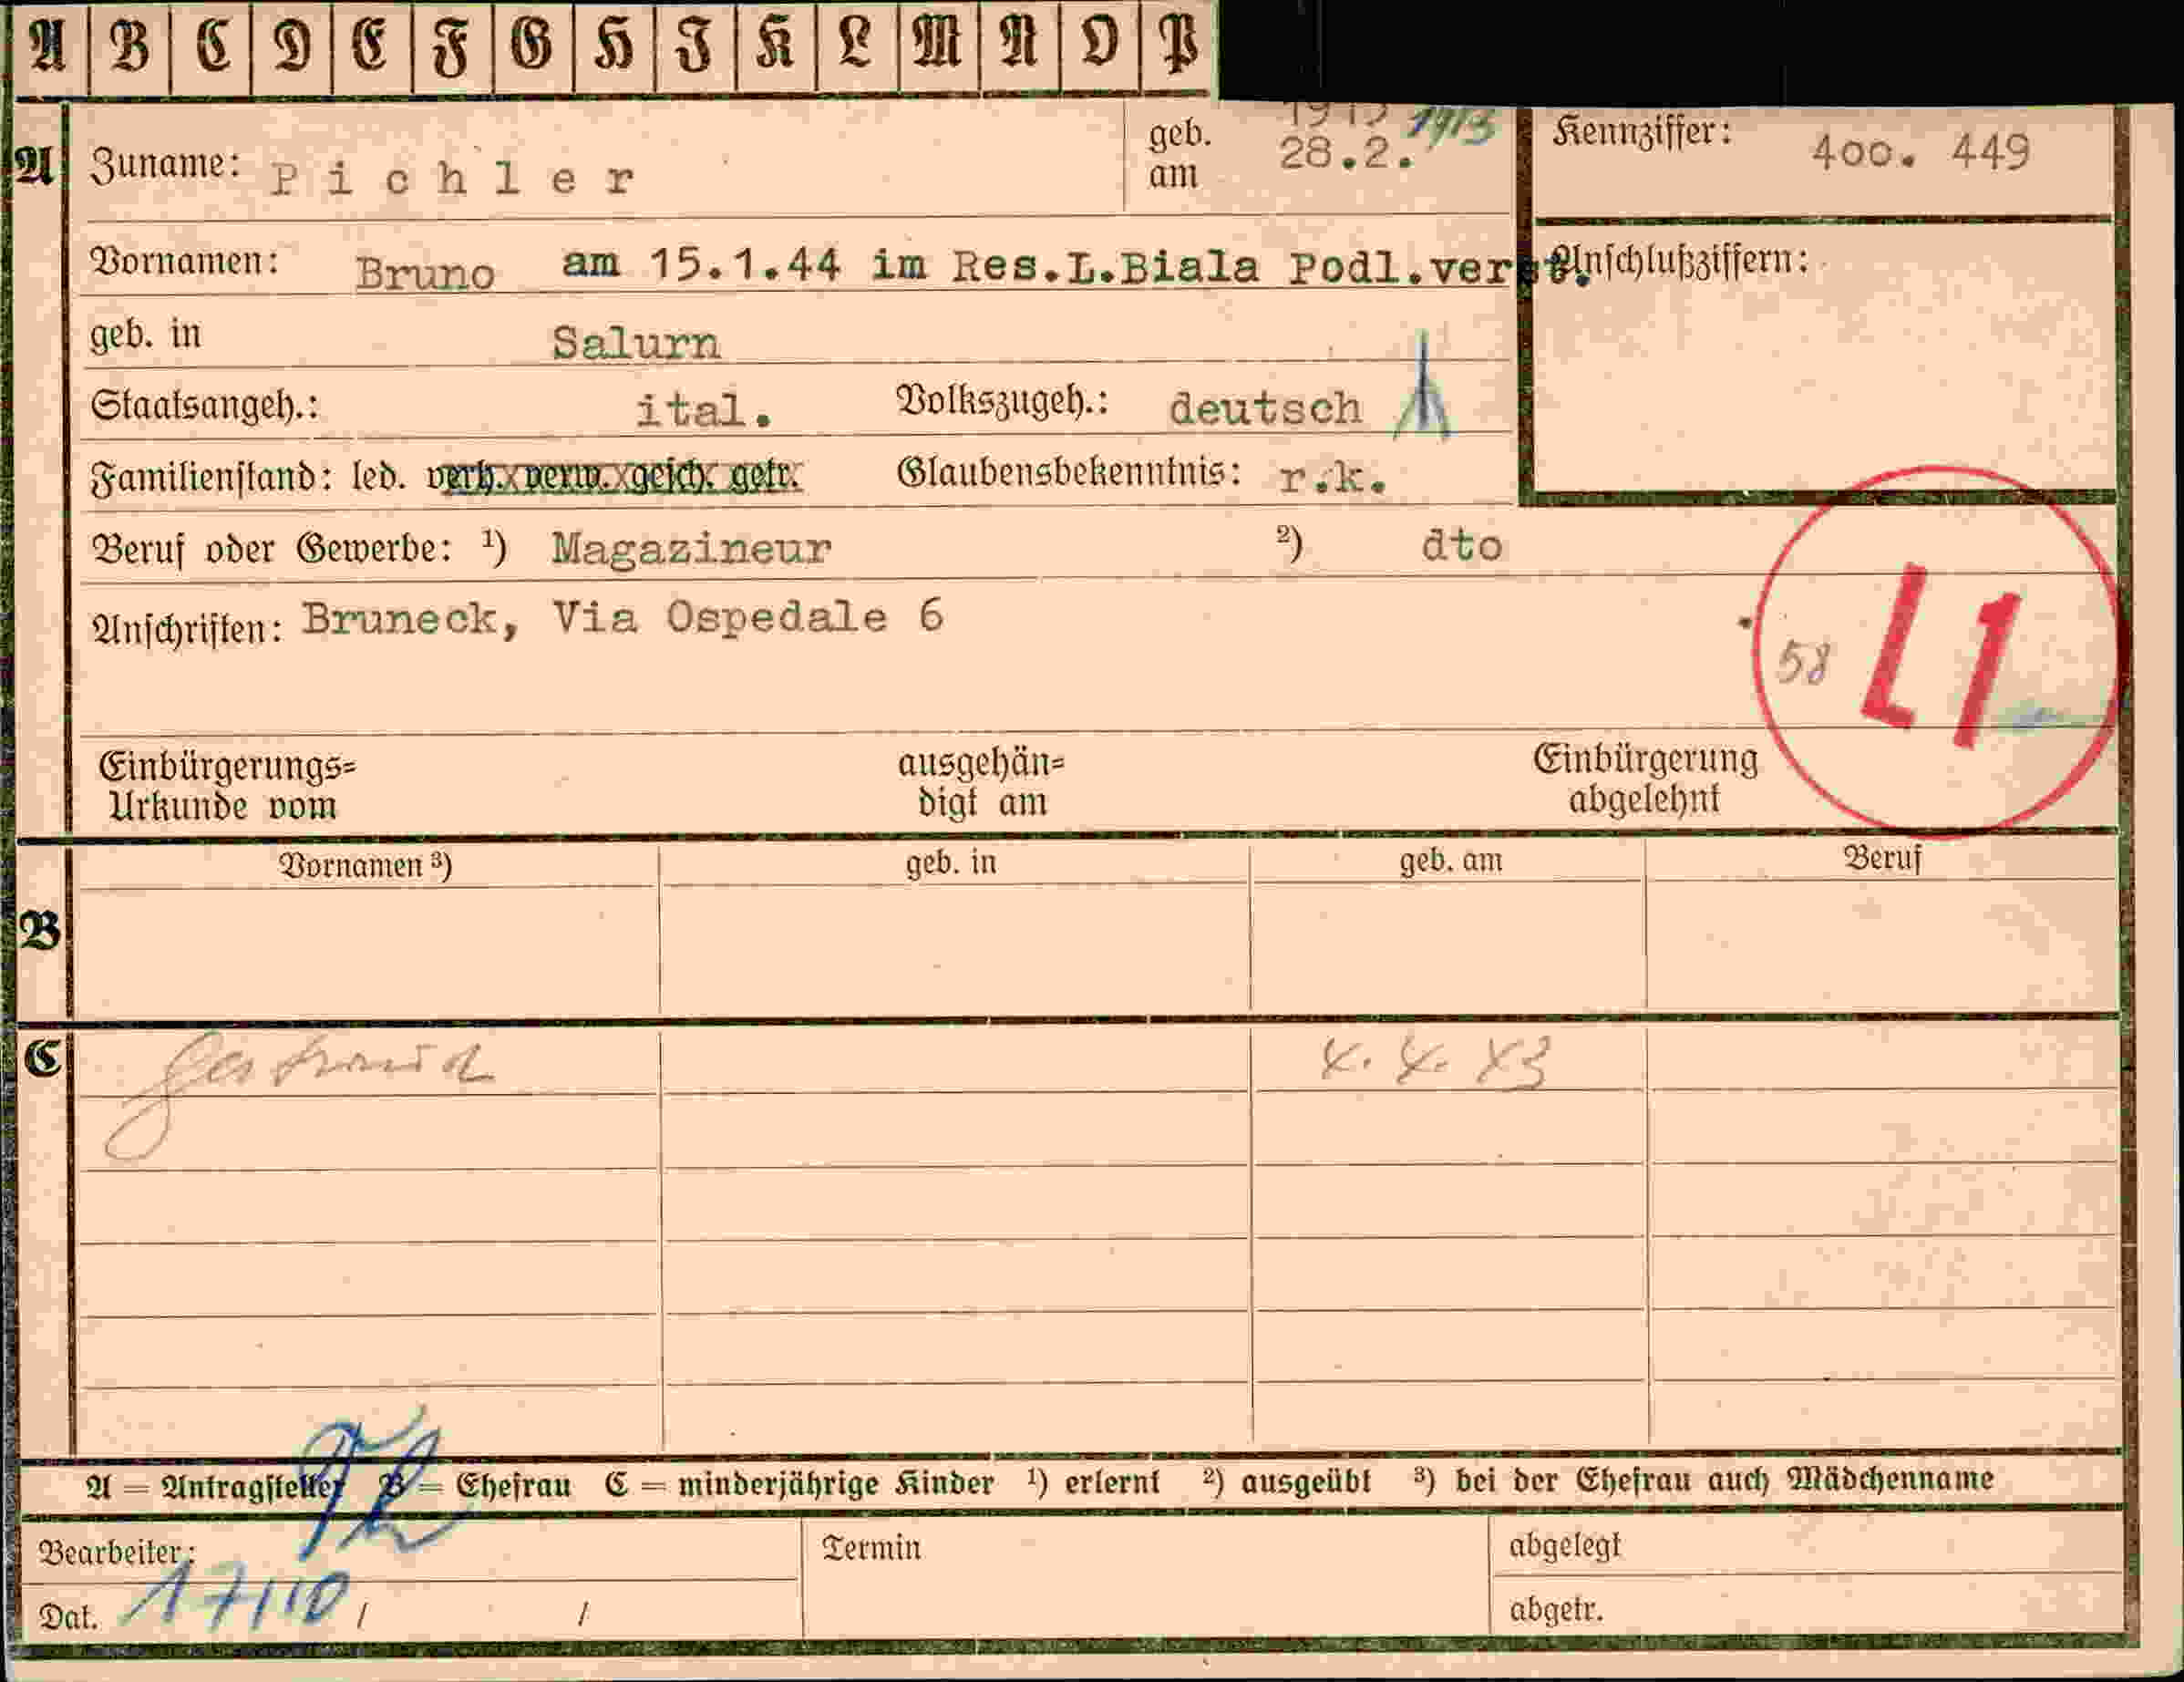 A B C D E F G H J K L M N O P
A Zuname: Pichler geb. am 28.2. 1913 Kennziffer: 400. 449
Vornamen: Bruno am 15.1.44 im Res.L.Biala Podl.verst. Anschlußziffern:
geb. in Salurn
Staatsangeh.: ital. Volkszugeh.: deutsch
Familienstand: led. verh. verw. gesch. getr. Glaubensbekenntnis: r.k.
Beruf oder Gewerbe: ¹) Magazineur ²) dto
Anschriften: Bruneck, Via Ospedale 6
58 L1
Einbürgerungs= ausgehän= Einbürgerung
Urkunde vom digt am abgelehnt
Vornamen ³) geb. in geb. am Beruf
B
C Gertraud 4. 4. 43
A = Antragsteller B = Ehefrau C = minderjährige Kinder ¹) erlernt ²) ausgeübt ³) bei der Ehefrau auch Mädchenname
Bearbeiter: Termin abgelegt
Dat. 17/10 / / abgetr.